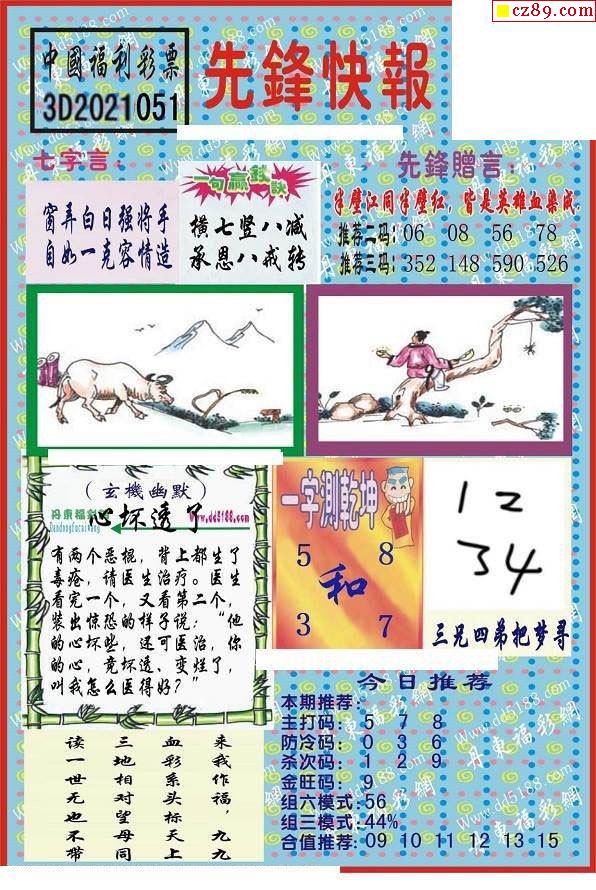 cz89.com
中國福利彩票
3D2021051
先鋒快報
七字言：
窗弄白日强將手
自如一克容情造
一句贏錢訣
橫七竖八减
承恩八戒转
先鋒贈言：
半壁江同半壁红，皆是英雄血染成。
推荐二码：06 08 56 78
推荐三码：352 148 590 526
（玄機幽默）
丹東福彩
www.dd5188.com
Dandongfucaiwang
心坏透了
有两个恶棍，背上都生了
毒疮，请医生治疗。医生
看完一个，又看第二个，
装出惊恐的样子说：“他
的心坏些，还可医治，你
的心，竟坏透、变烂了，
叫我怎么医得好？”
一字測乾坤
5 8
和
3 7
12
34
三兄四弟把梦寻
来我作福，九九
血彩系头标天上
三地相对望母同
读一世无也不带
今日推荐
本期推荐：
主打码：5 7 8
防冷码：0 3 6
杀次码：1 2 9
金旺码：9
组六模式：56
组三模式：44%
合值推荐：09 10 11 12 13 15
Www.dd5188.com
丹東福彩網